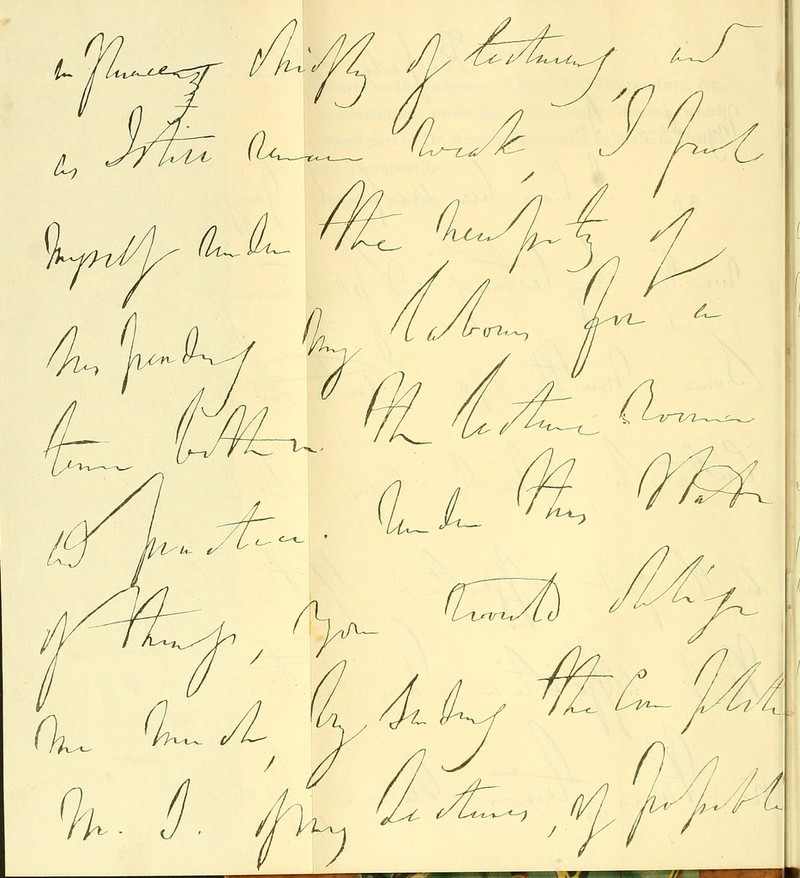 influences chiefly of lecturing, and
as I still remain weak, I find
myself under the necessity of
suspending my labours for a
time both in the lecture Room
and practice. Under this State
of things, you would oblige
me much, by sending the Complete
M. S. of my Lectures, if possible